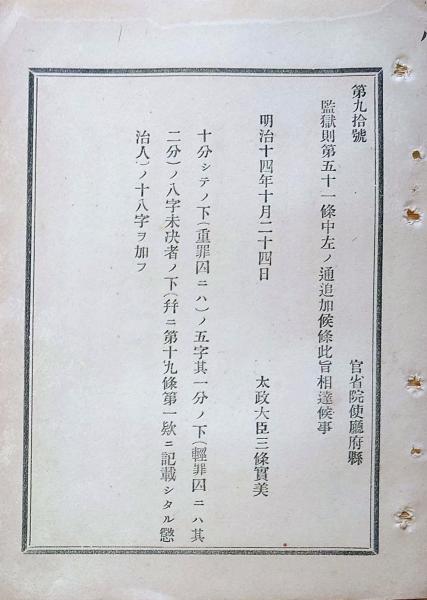 第九拾號
官省院使廳府縣
監獄則第五十一條中左ノ通追加候條此旨相達候事
明治十四年十月二十四日
太政大臣三條實美
十分シテノ下(重罪囚ニハ)ノ五字其一分ノ下(輕罪囚ニハ其
二分)ノ八字未決者ノ下(幷ニ第十九條第一欵ニ記載シタル懲
治人)ノ十八字ヲ加フ